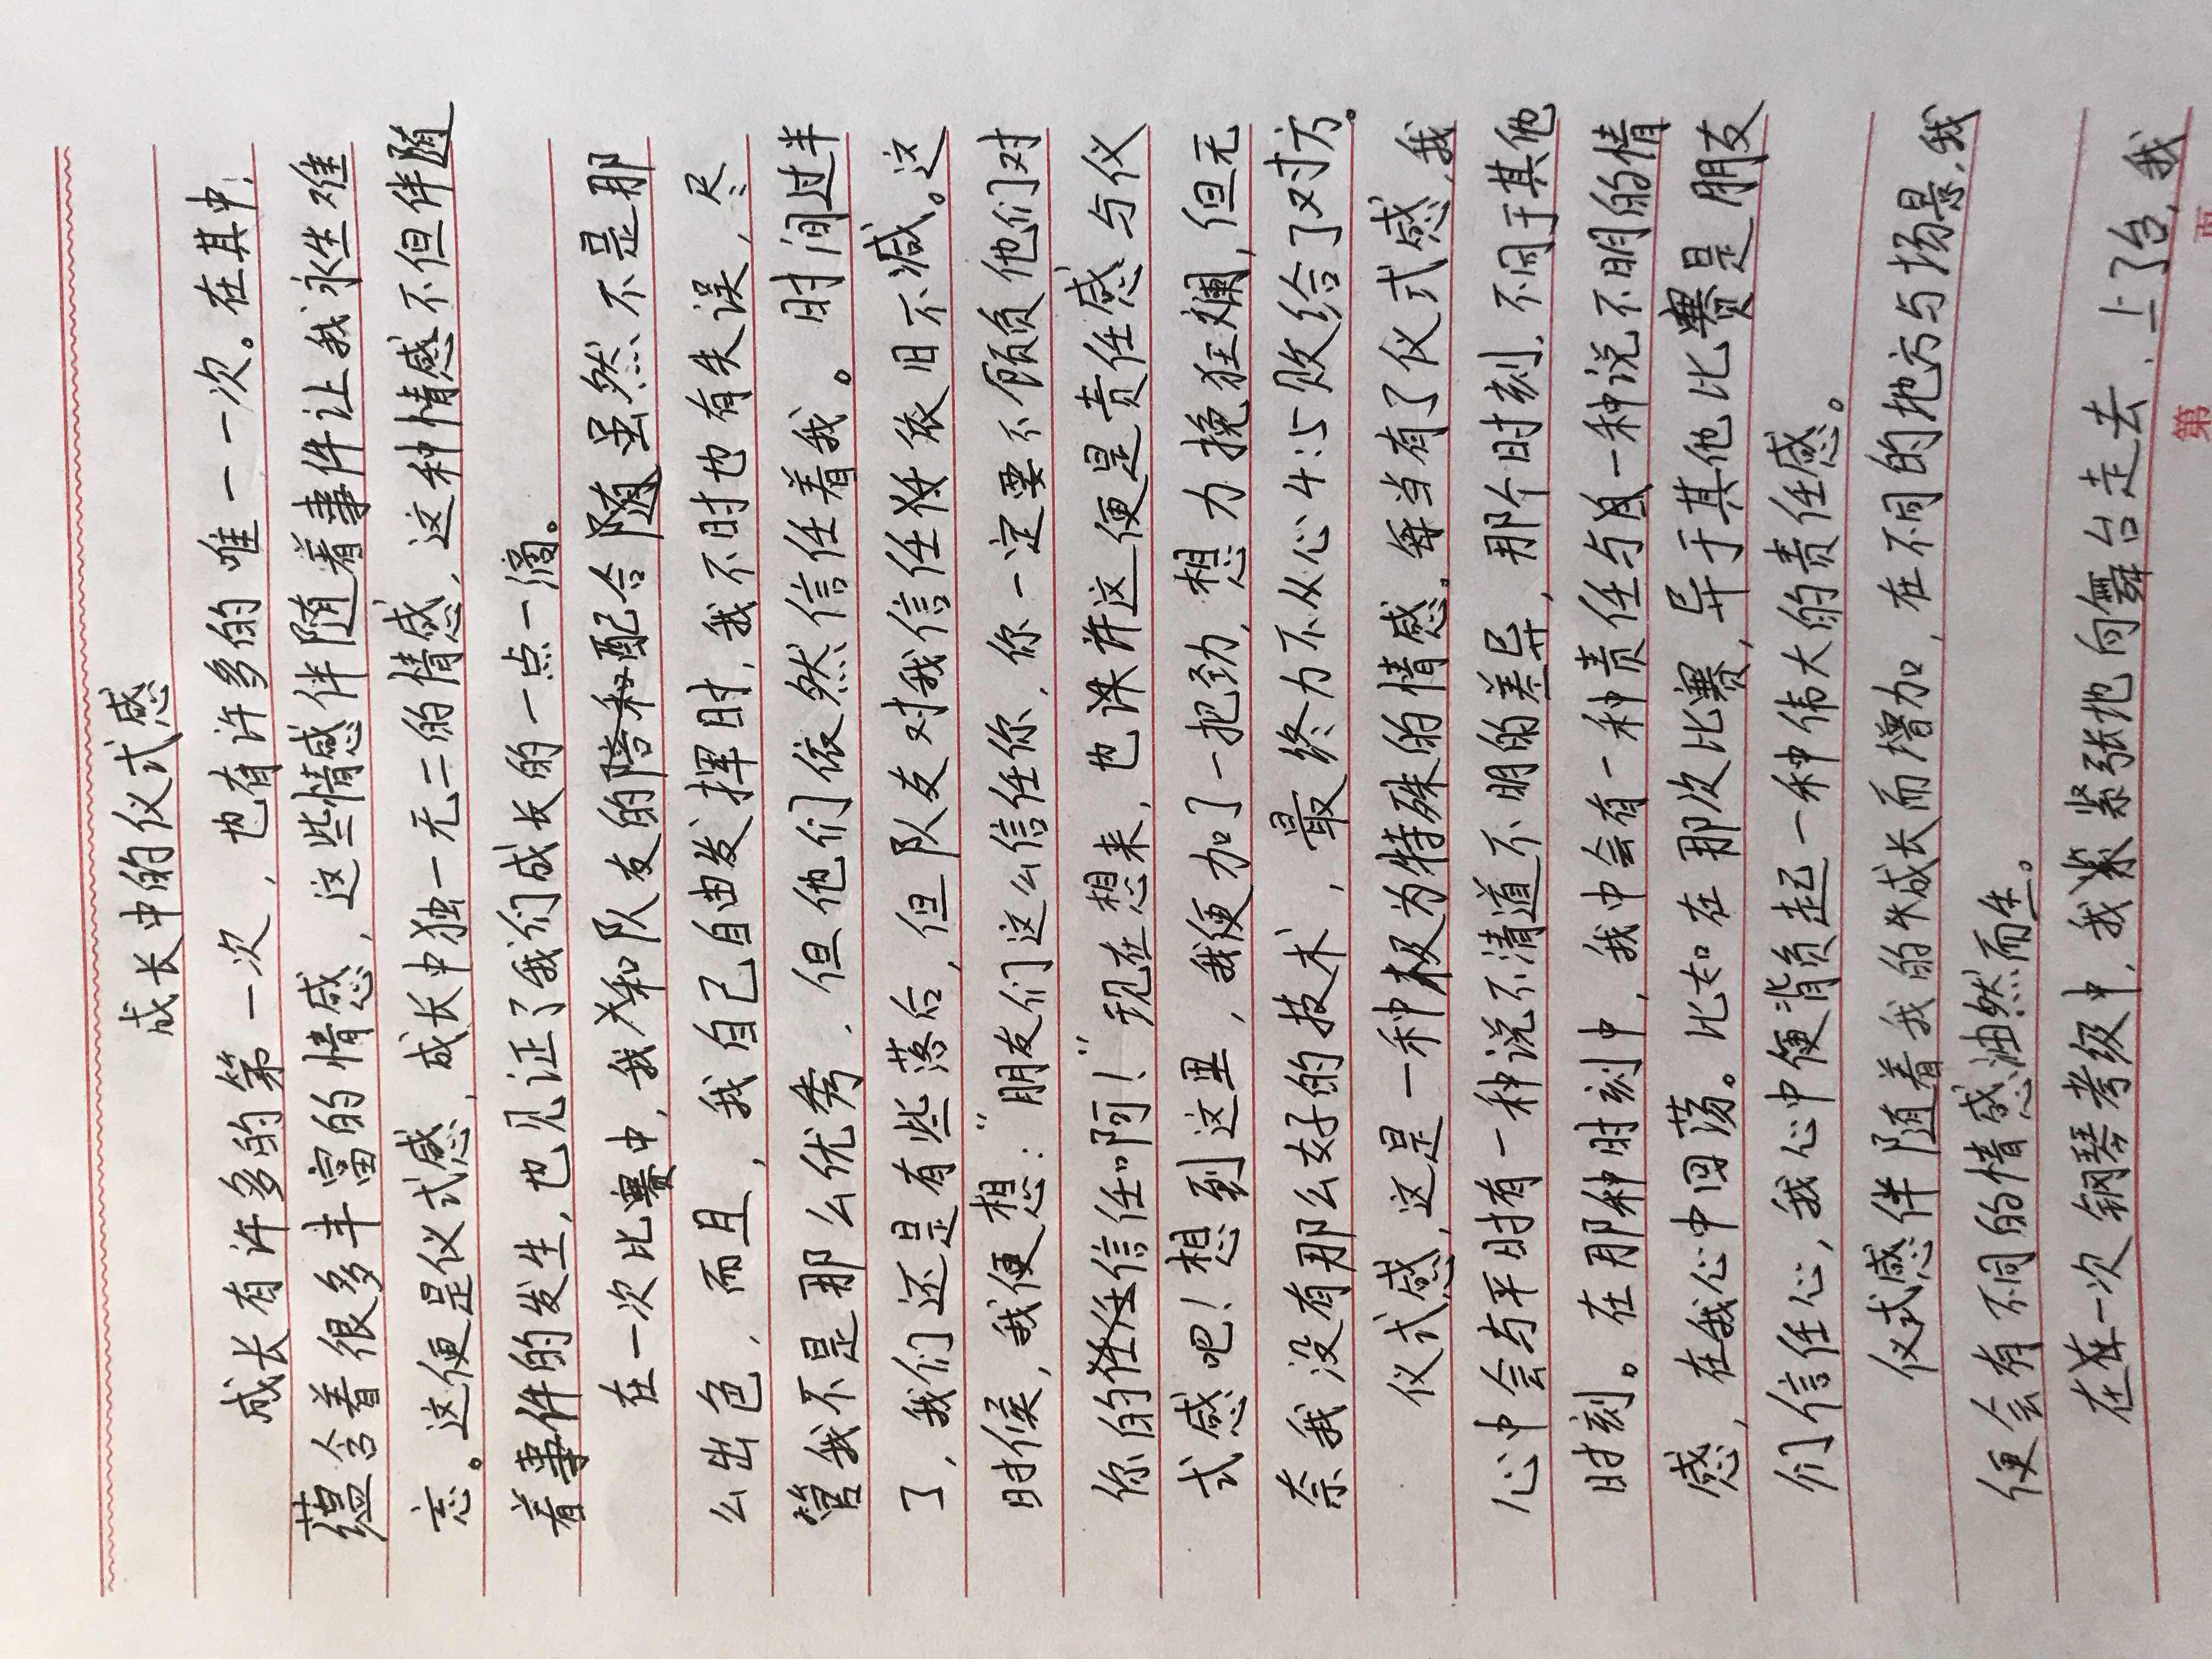 成长中的仪式感
成长有许多的第一次，也有许多的唯一一次。在其中，
蕴含着很多丰富的情感，这些情感伴随着事件让我永生难
忘。这便是仪式感，成长中独一无二的情感，这种情感不但伴随
着事件的发生，也见证了我们成长的一点一滴。
在一次比赛中，我和队友的陪和配合随虽然不是那
么出色，而且，我自己自由发挥时，我不时也有失误，尽
管我不是那么优秀，但他们依然信任着我。时间过半
了，我们还是有些落后，但队友对我信任依旧不减。这
时候，我便想：“朋友们这么信任你，你一定要不顾负他们对
你的信任啊！”现在想来，也许这便是责任感与仪
式感吧！想到这里，我便加了一把劲，想力挽狂斓，但无
奈我没有那么好的技术，最终力不从心4:5败给了对方。
仪式感，这是一种极为特殊的情感。每当有了仪式感，我
心中会与平时有一种说不清道不明的差异，那个时刻，不同于其他
时刻。在那种时刻中，我中会有一种责任与一种说不明的情
感，在我心中回荡。比如在那次比赛，异于其他比赛是朋友
们信任心，我心中便背负起一种伟大的责任感。
仪式感伴随着我的成长而增加，在不同的地方与场景，我
便会有不同的情感油然而生。
在一次钢琴考级中，我紧张地向舞台走去，上了台，我
第 页